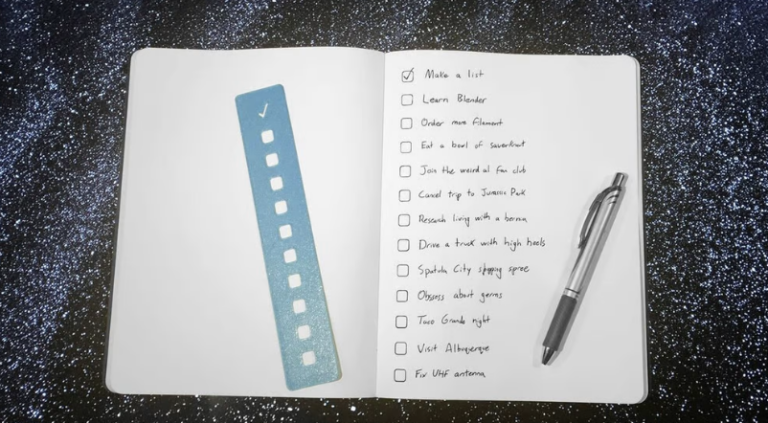 Make a list
Learn Blender
Order more filament
Eat a bowl of sauerkraut
Join the weird al fan club
Cancel trip to Jurassic Park
Research living with a hernia
Drive a truck with high heels
Spatula City shopping spree
Obsess about germs
Taco Grande night
Visit Albuquerque
Fix UHF antenna